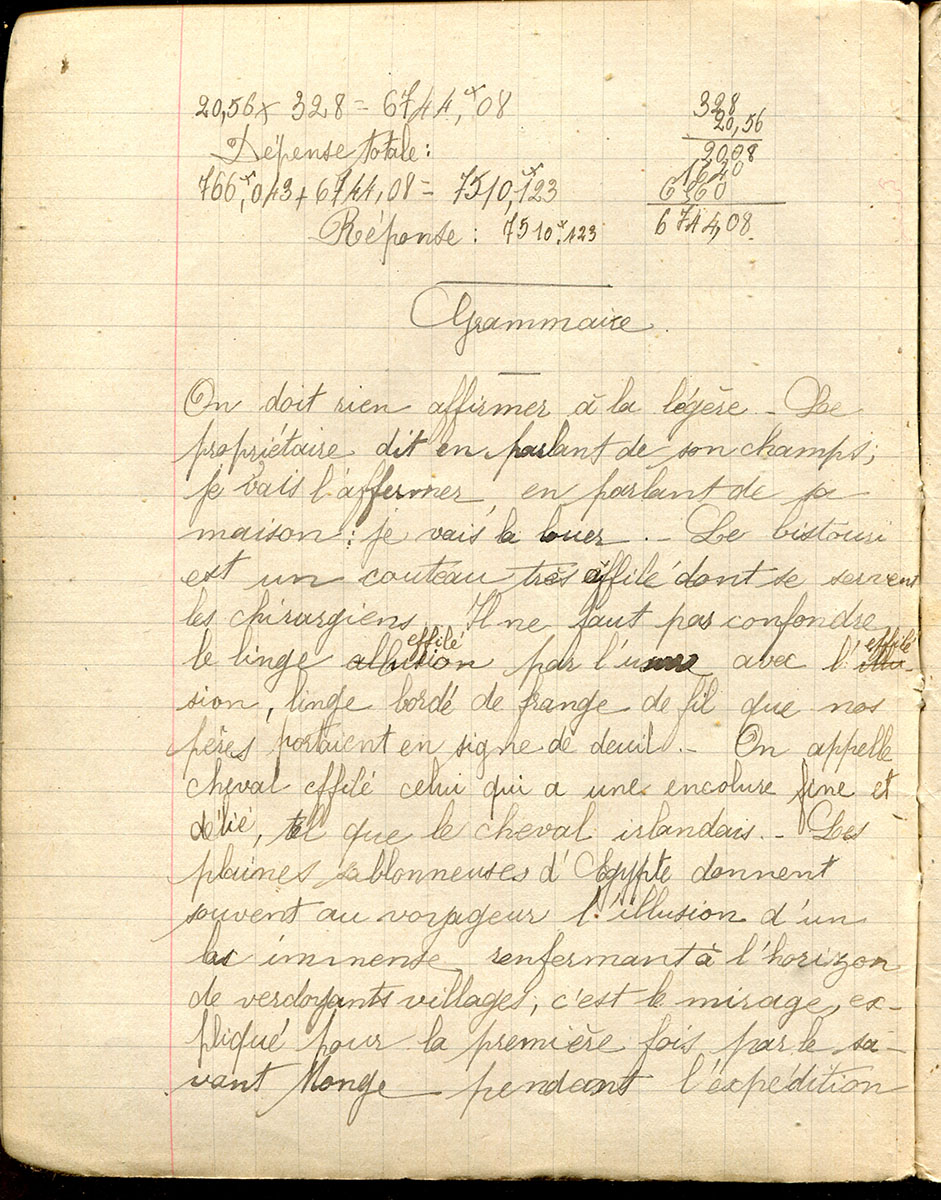 20,56 x 328 = 6744,ᶠ08
328
20,56
2008
1640
6560
6744,08
Dépense totale :
766,ᶠ043 + 6744,08 = 7510,ᶠ123
Réponse : 7510ᶠ,123
Grammaire.
On doit rien affirmer à la légère – Le
propriétaire dit en parlant de son champs ;
je vais l'affermer, en parlant de sa
maison : je vais la louer . – Le bistouri
est un couteau très effilé dont se servent
les chirurgiens. Il ne faut pas confondre
le linge allusion effilé par l'usure avec l'illu- effilé
sion, linge bordé de frange de fil que nos
pères portaient en signe de deuil. – On appelle
cheval effilé celui qui a une encolure fine et
délié, tel que le cheval irlandais. – Les
plaines sablonneuses d'Egypte donnent
souvent au voyageur l'illusion d'un
lac immense renfermant à l'horizon
de verdoyants villages, c'est le mirage, ex-
pliqué pour la première fois par le sa-
vant Monge pendant l'expédition